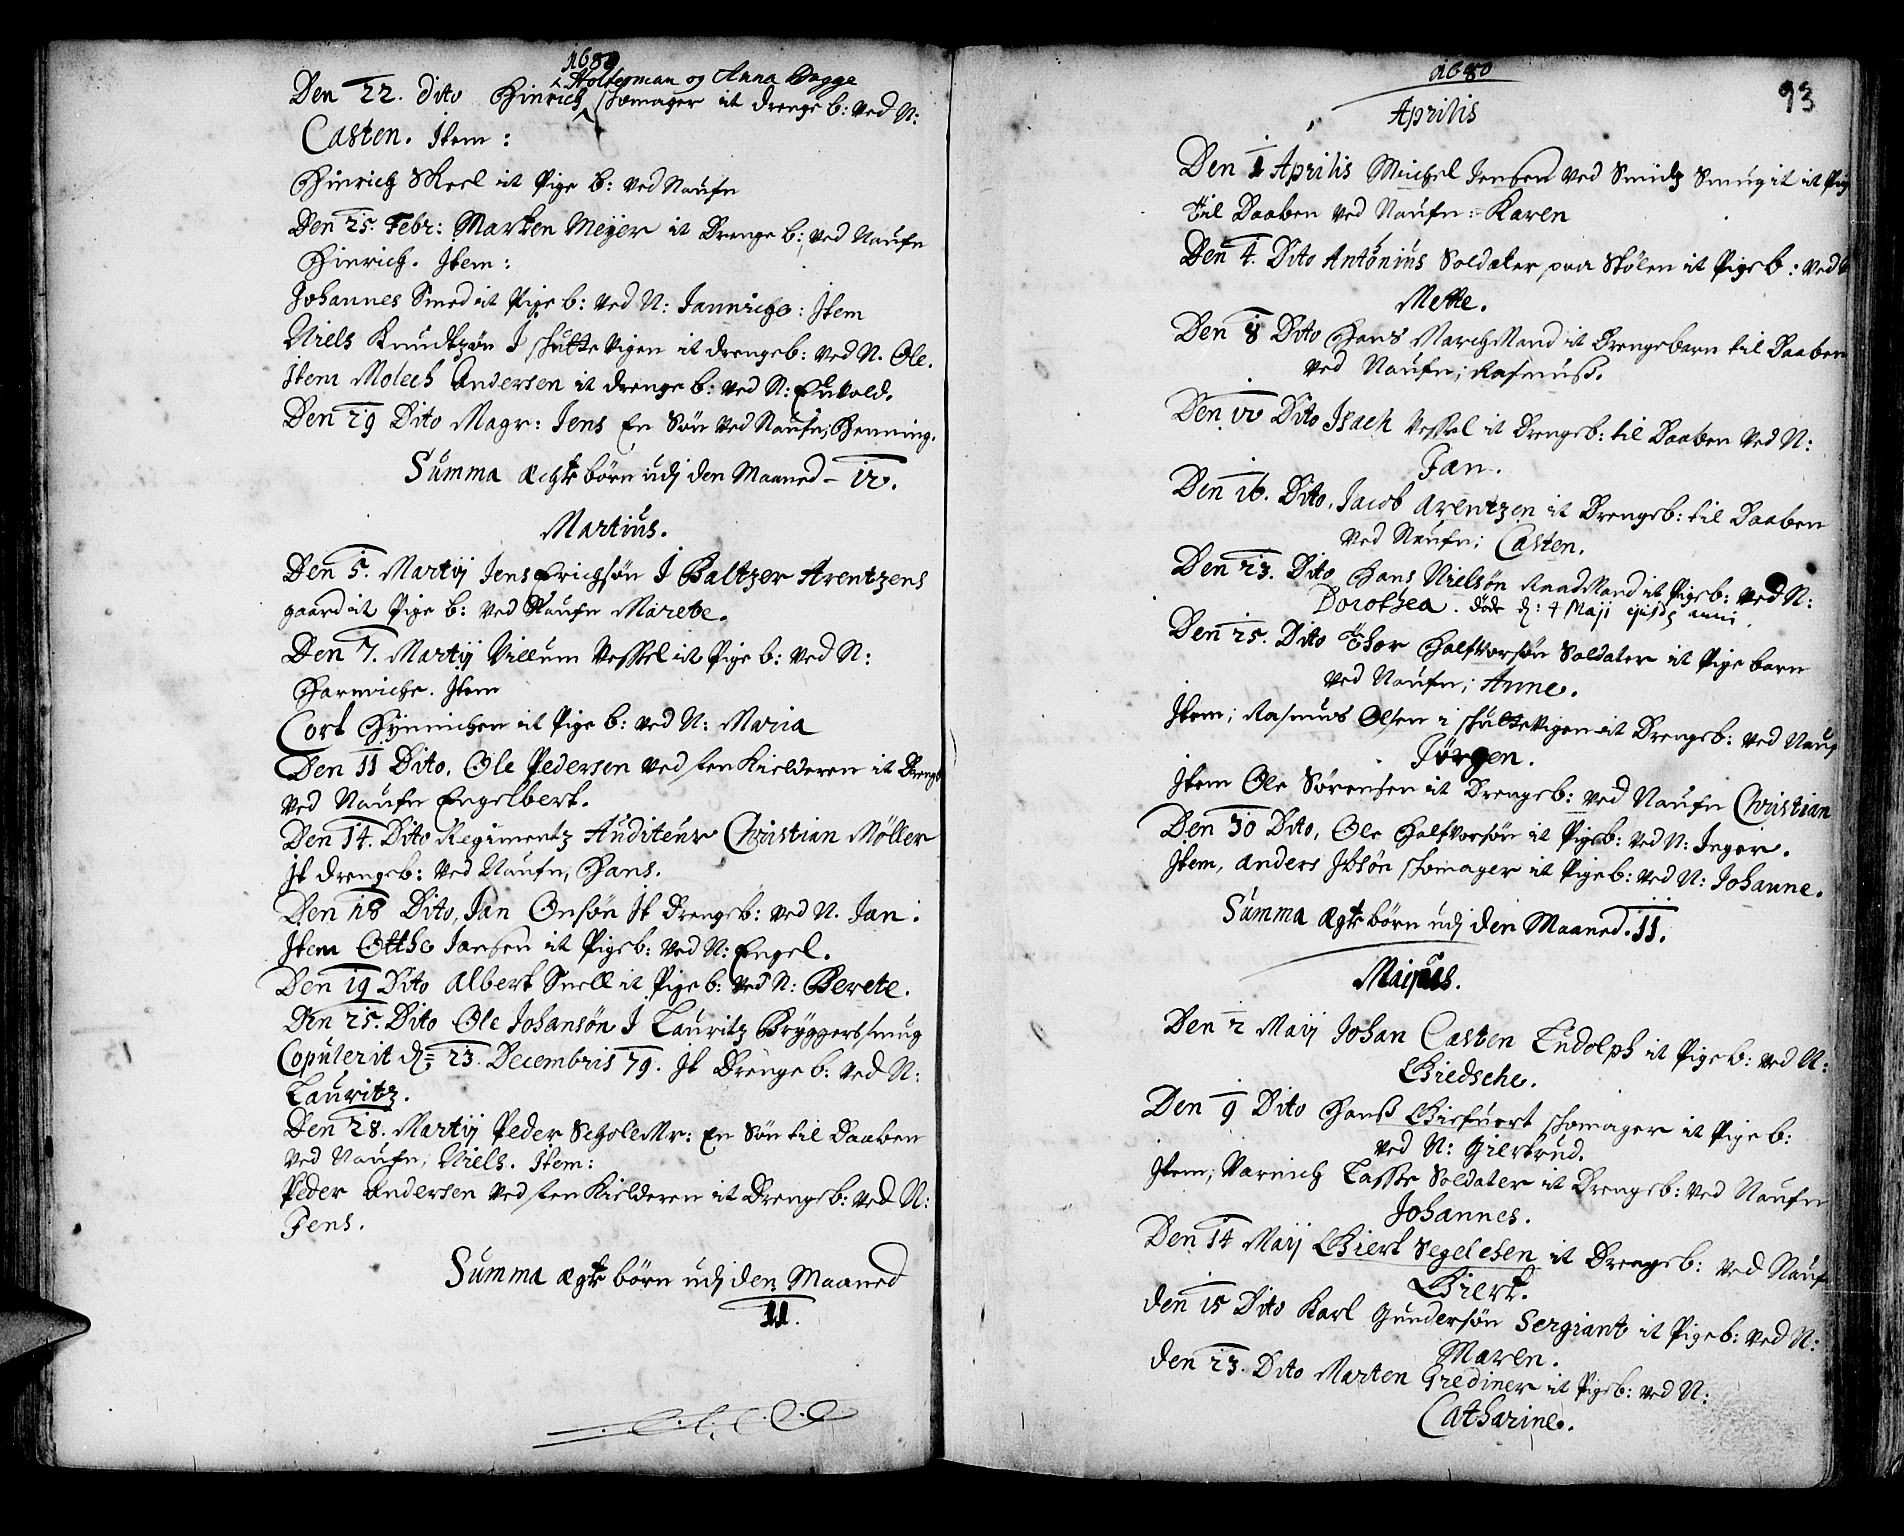 1680
Holterman og Anna Bagge
Den 22. Dito Hinrich skomager it drenge b: ved N:
Casten. Item:
Hinrich Skeel it Pige b: ved Naufn
Den 25. Febr: Marten Meÿer it Drenge b: ved Naufn
Hinrich. Item:
Johannes Smed it Pige b: ved N: Jannicke: Item
Niels Knudtzøn I skuttevigen it drengeb: ved N. Ole.
Item Andersen it drenge b: ved N:
Den 29 Dito Magr: Jens En Søn ved Naufn; Henning.
Summa Ægte børn udj den Maaned - 10.
Martius.
Den 5. Martij Jens Erichsøn I Baltzer Arentzens
gaard it Pige b: ved Naufn Marete.
Den 7. Martij Villum Vessel it Pige b: ved N:
Harmicke. Item
Cort Hÿnnichen it Pige b: ved N: Maria
Den 11 Dito, Ole Pedersen ved sten Kielderen it Drengb
ved Naufn Engelbert.
Den 14. Dito Regimentz Auditeur Christian Møller
It drengeb: ved Naufn, Hans.
Den 18 Dito, Jan Onsøn It Drengeb: ved N. Jan:
Item Ottho Jansen it Pigeb: ved N: Engel.
Den 19 Dito Albert Snell it Pige b: ved N: Berete.
Den 25. Dito Ole Johansøn I Lauritz Brÿggers smug
Copulerit d: 23. Decembris 79. It Drenge b: ved N:
Lauritz.
Den 28. Martij Peder Scholemr: En Søn til Daaben
ved Naufn, Niels. Item:
Peder Andersen ved sten Kielderen it Drengeb: ved N:
Jens.
Summa ægte børn udj den Maaned
11.
1680
93
Aprilis
Den 1 Aprilis Michel Jensen ved Smidz Smug it it Pig
til Daaben ved Naufn: Karen
Den 4. Dito Antonius Soldater paa Skølen it Pigeb: ved
Mette.
Den 8 Dito Hans Marchmand it Drengebarn til Daaben
ved Naufn; Rasmuss.
Den 10 Dito Isach Vessel it Drengeb: til Daaben ved N:
Jan.
Den 16. Dito, Jacob Arentzen it Drengeb: til Daaben
ved Naufn; Casten.
Den 23. Dito Hans Nielsøn Raadmand it Pigeb: ved N:
Dorothea. døde d: 4 Maji ejusdq anni.
Den 25. Dito Thor Halfvorsøn Soldater it Pige barn
ved Naufn; Anne.
Item; Rasmus Olsen i skuttevigen it Drengeb: ved Nauf
Jørgen.
Item Ole Sørensen it Drengeb: ved Naufn Christian
Den 30 Dito, Ole Halfvorsøn it Pigeb: ved N: Inger.
Item, Anders Ibsøn skomager it Pigeb: ved N: Johanne.
Summa ægte børn udj den Maaned. 11.
Maijus.
Den 2 Maij Johan Casten Ludolph it Pige b: ved N:
Giedsche.
Den 9 Dito Hanss skomager it Pige b:
ved N: Giertrud.
Item; Varnich Lasse Soldater it Drengeb: ved Naufn
Johannes.
Den 14 Maij Giert Segelchen it Drengeb: ved Nauf
Giert.
Den 15 Dito Karl Gundersøn Sergiant it Pigeb: ved N:
Maren.
Den 23. Dito Marten Grediner it Pigeb: ved N:
Catharine.